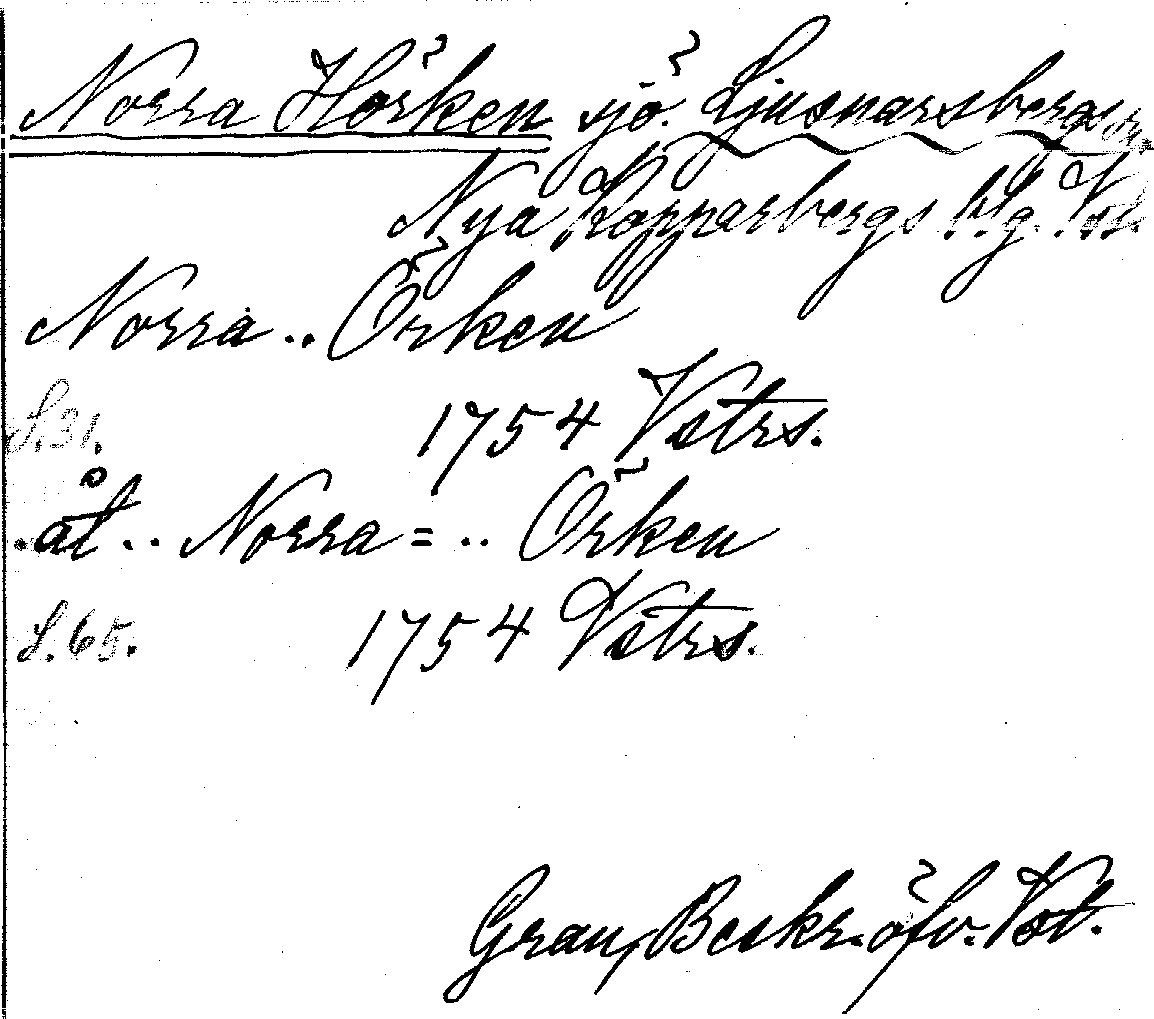 Norra Hörken sjö. Ljusnarsbergs sn.
Nya Kopparbergs blg. Vstm.
Norra .. Örken
S.31. 1754 Vstrs.
åt .. Norra = .. Örken
S.65. 1754 Vstrs.
Grau, Beskr. öfv. Vst.